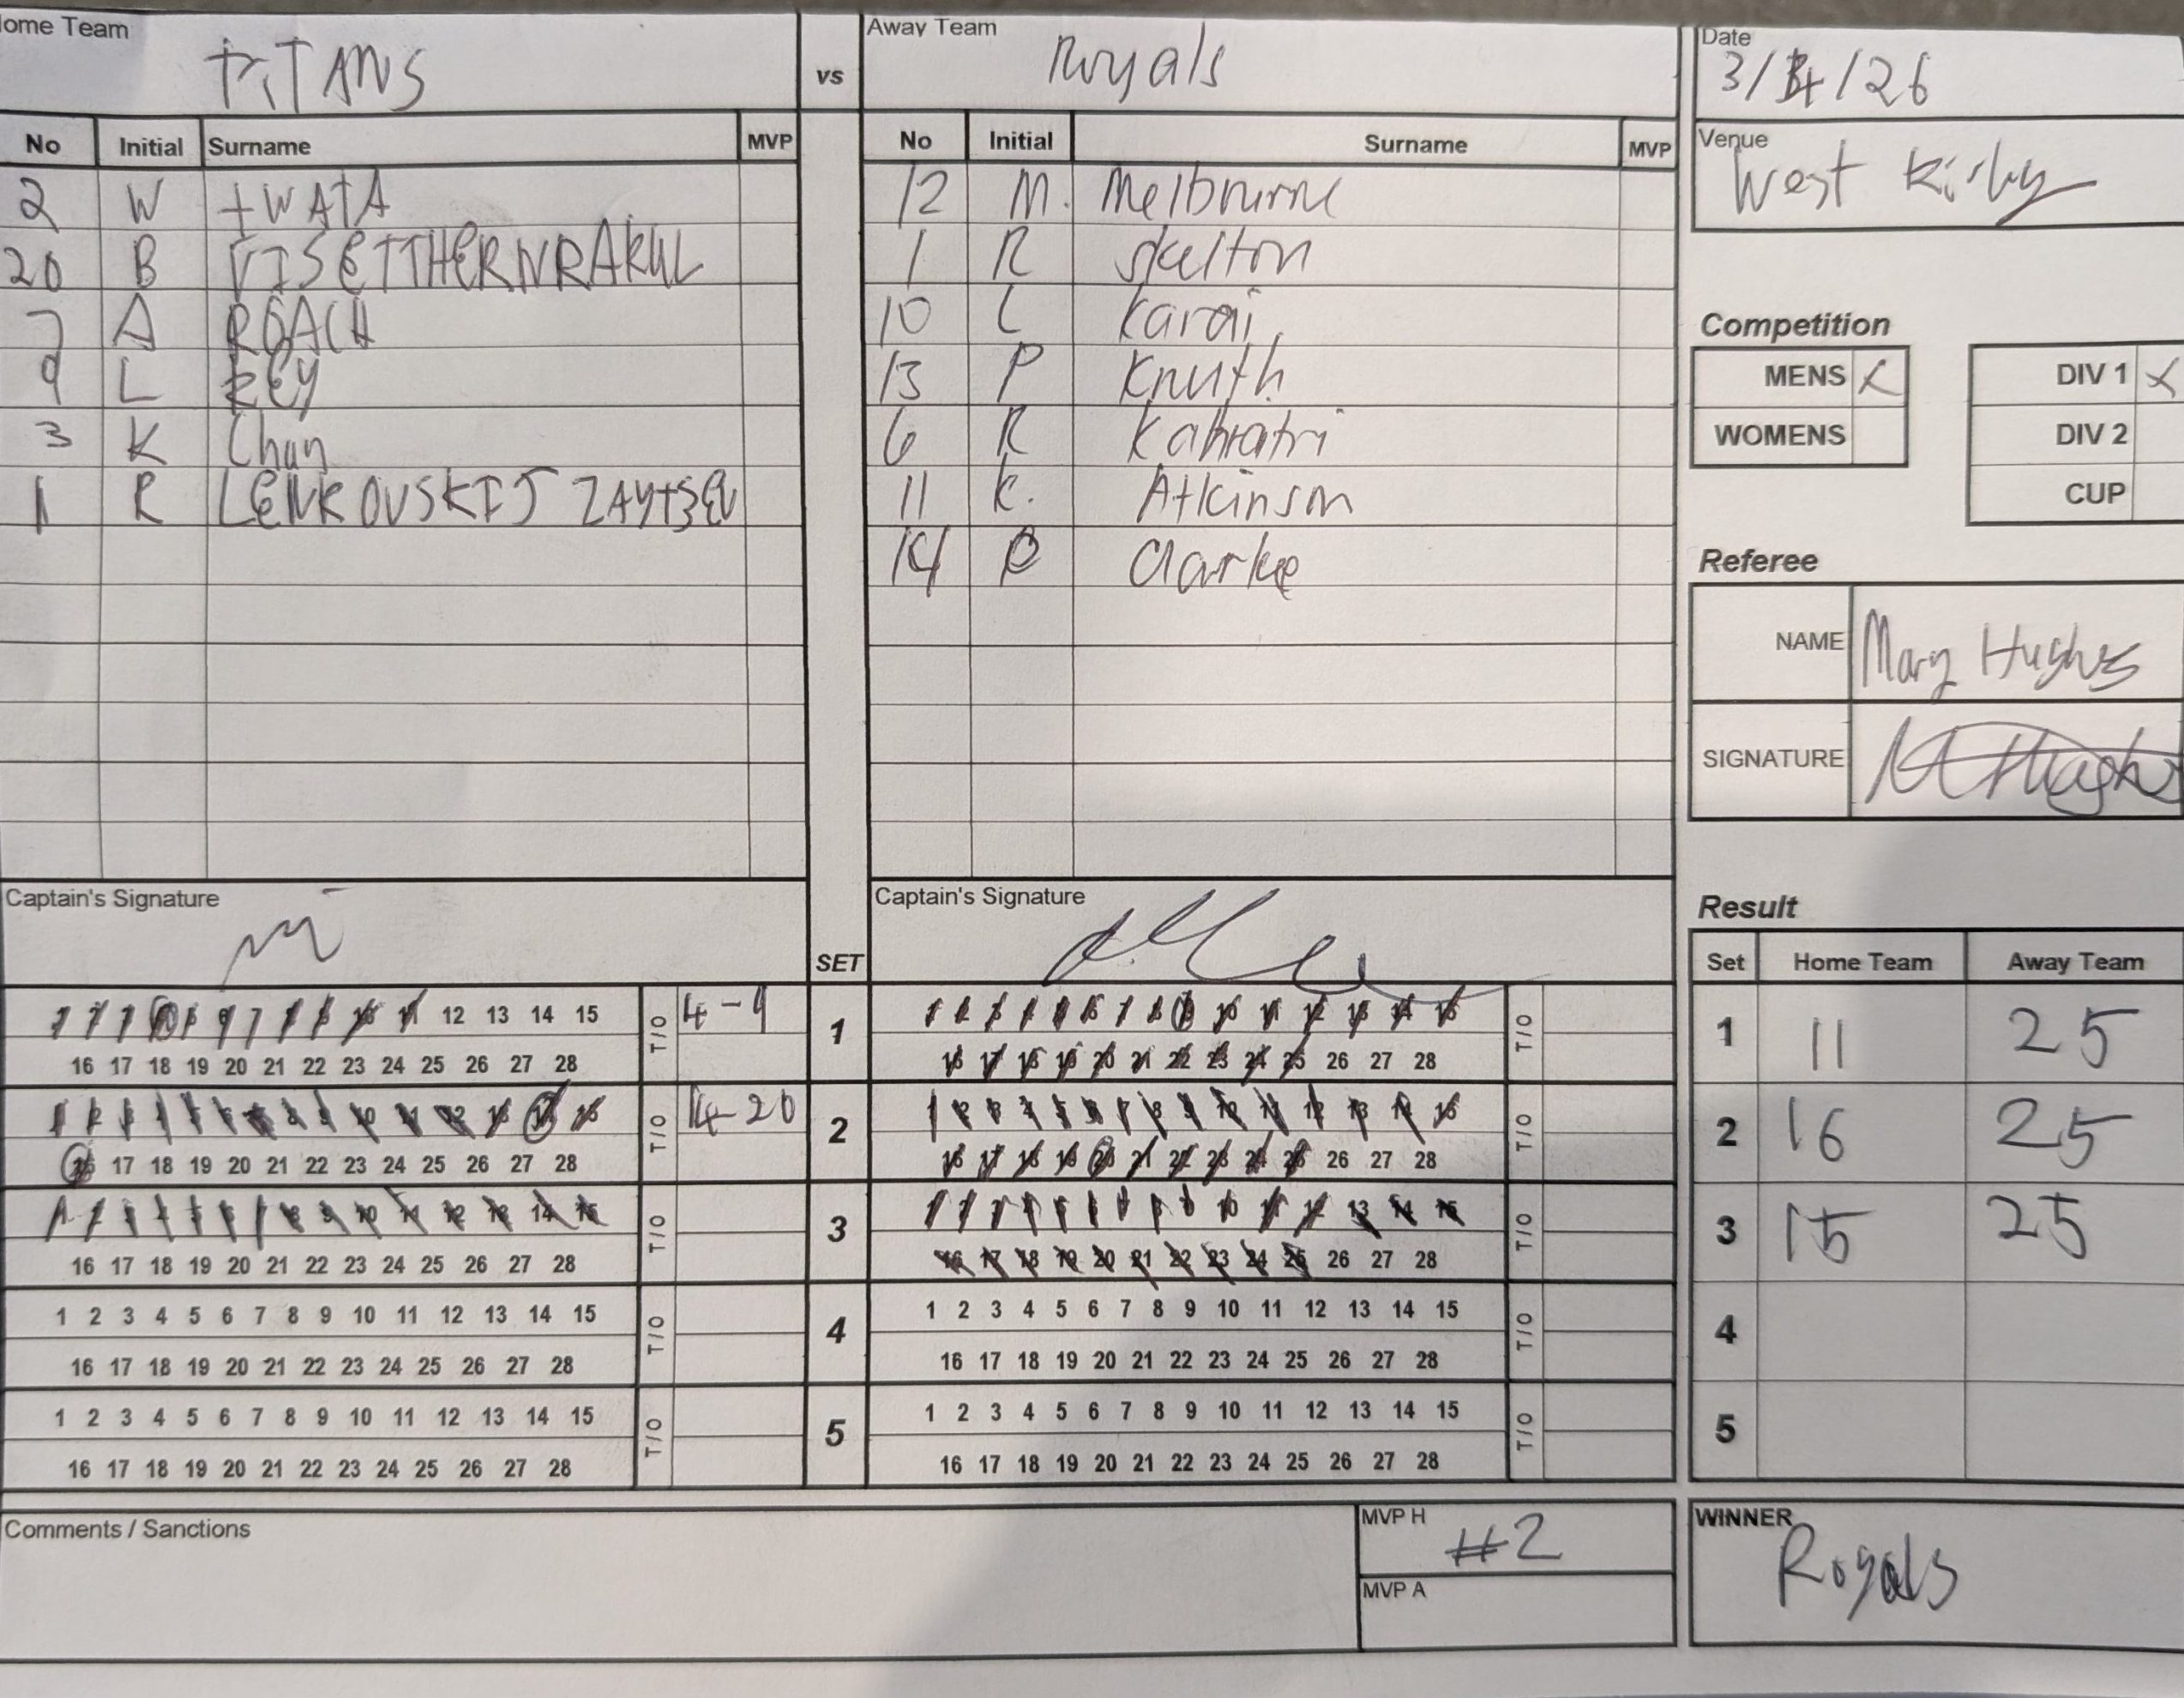 ome Team
TITANS
vs
Away Team
Royals
Date
3/4/26
No Initial Surname MVP
No Initial Surname MVP
Venue
West Kirby
2 W
12 M. Melbourne
20 B VISETTHERNRAKUL
1 R Skelton
7 A ROACH
10 L Karai
9 L REY
13 P Knuth
3 K Chan
6 R
1 R LENKOVSKIJ ZAYTSEV
11 K. Atkinson
14 Clarke
Competition
MENS X
DIV 1 X
WOMENS
DIV 2
CUP
Referee
NAME Mary Hughes
SIGNATURE
Captain's Signature
Captain's Signature
SET
1 2 3 4 5 6 7 8 9 10 11 12 13 14 15
16 17 18 19 20 21 22 23 24 25 26 27 28
T/O 4-9
1
1 2 3 4 5 6 7 8 9 10 11 12 13 14 15
16 17 18 19 20 21 22 23 24 25 26 27 28
T/O
1 2 3 4 5 6 7 8 9 10 11 12 13 14 15
16 17 18 19 20 21 22 23 24 25 26 27 28
T/O 14-20
2
1 2 3 4 5 6 7 8 9 10 11 12 13 14 15
16 17 18 19 20 21 22 23 24 25 26 27 28
T/O
1 2 3 4 5 6 7 8 9 10 11 12 13 14 15
16 17 18 19 20 21 22 23 24 25 26 27 28
T/O
3
1 2 3 4 5 6 7 8 9 10 11 12 13 14 15
16 17 18 19 20 21 22 23 24 25 26 27 28
T/O
1 2 3 4 5 6 7 8 9 10 11 12 13 14 15
16 17 18 19 20 21 22 23 24 25 26 27 28
T/O
4
1 2 3 4 5 6 7 8 9 10 11 12 13 14 15
16 17 18 19 20 21 22 23 24 25 26 27 28
T/O
1 2 3 4 5 6 7 8 9 10 11 12 13 14 15
16 17 18 19 20 21 22 23 24 25 26 27 28
T/O
5
1 2 3 4 5 6 7 8 9 10 11 12 13 14 15
16 17 18 19 20 21 22 23 24 25 26 27 28
T/O
Result
Set Home Team Away Team
1 11 25
2 16 25
3 15 25
4
5
Comments / Sanctions
MVP H #2
MVP A
WINNER
Royals